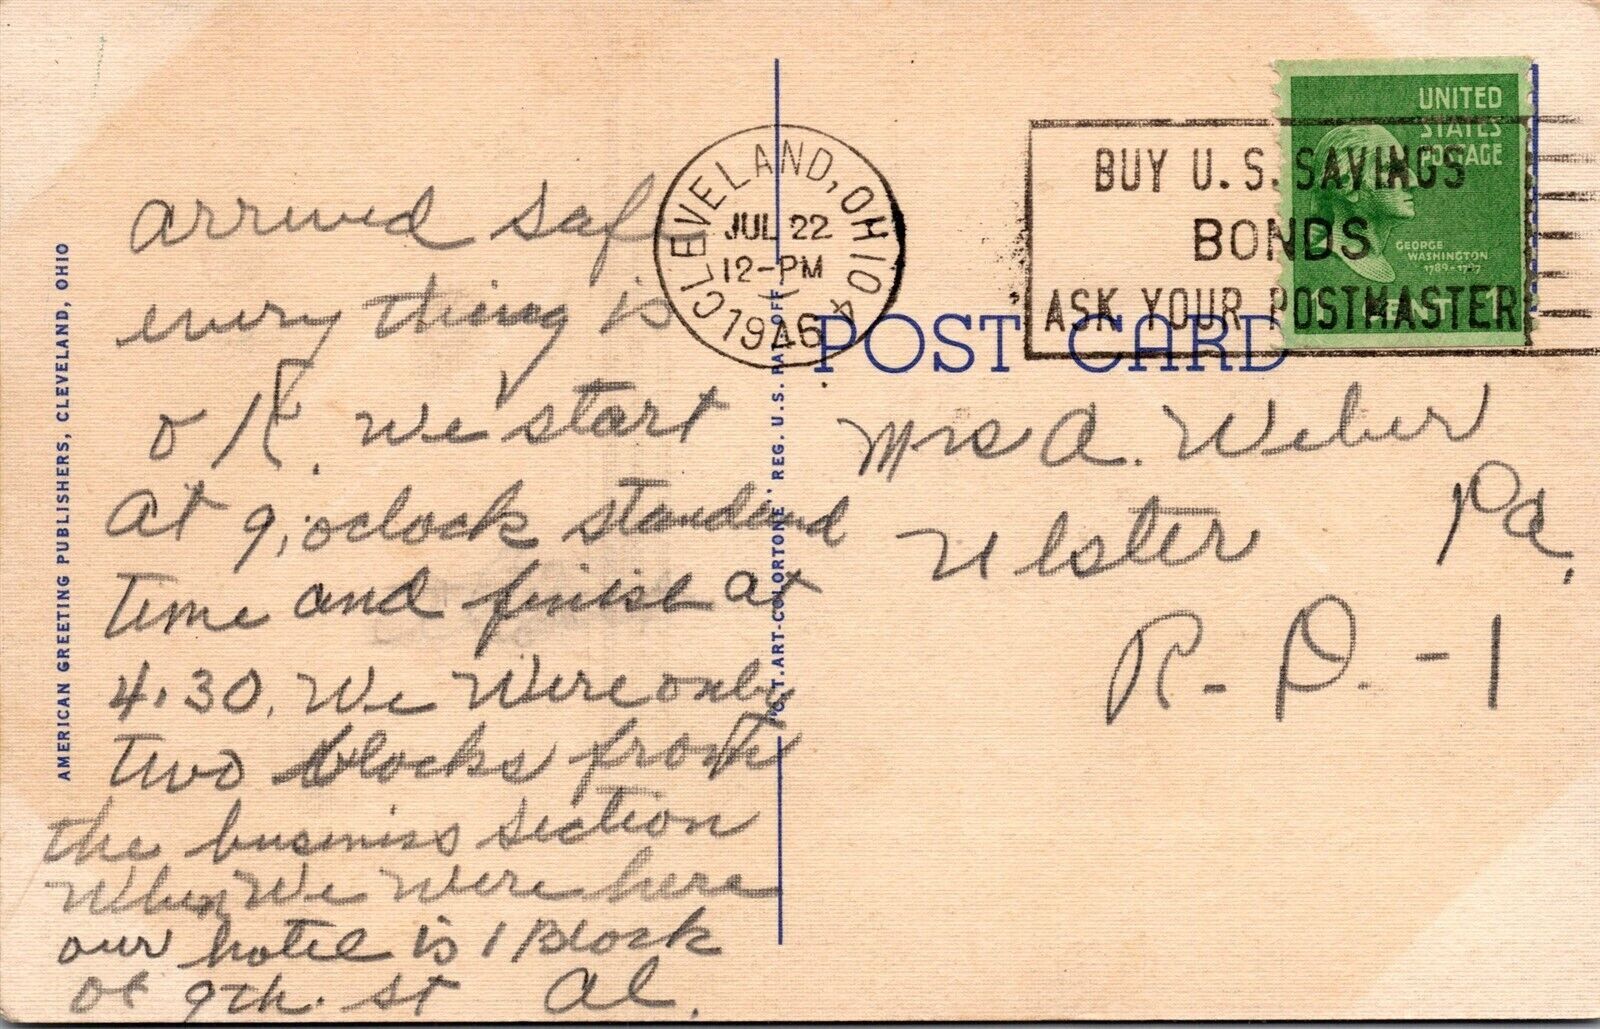 arrived safe
every thing is
O K. we start
at 9, oclock standard
time and finish at
4.30. We were only
two blocks from
the business section
When We were here
our hotel is 1 Block
of 9th. st Al.
AMERICAN GREETING PUBLISHERS, CLEVELAND, OHIO
"C.T. ART-COLORTONE" REG. U.S. PAT. OFF.
CLEVELAND, OHIO 4
JUL 22
12-PM
1946
BUY U.S. SAVINGS
BONDS
ASK YOUR POSTMASTER
UNITED
STATES
POSTAGE
GEORGE
WASHINGTON
1789-1797
1 CENT 1
POST CARD
Mrs A. Weber
Ulster Pa.
R. D. -1